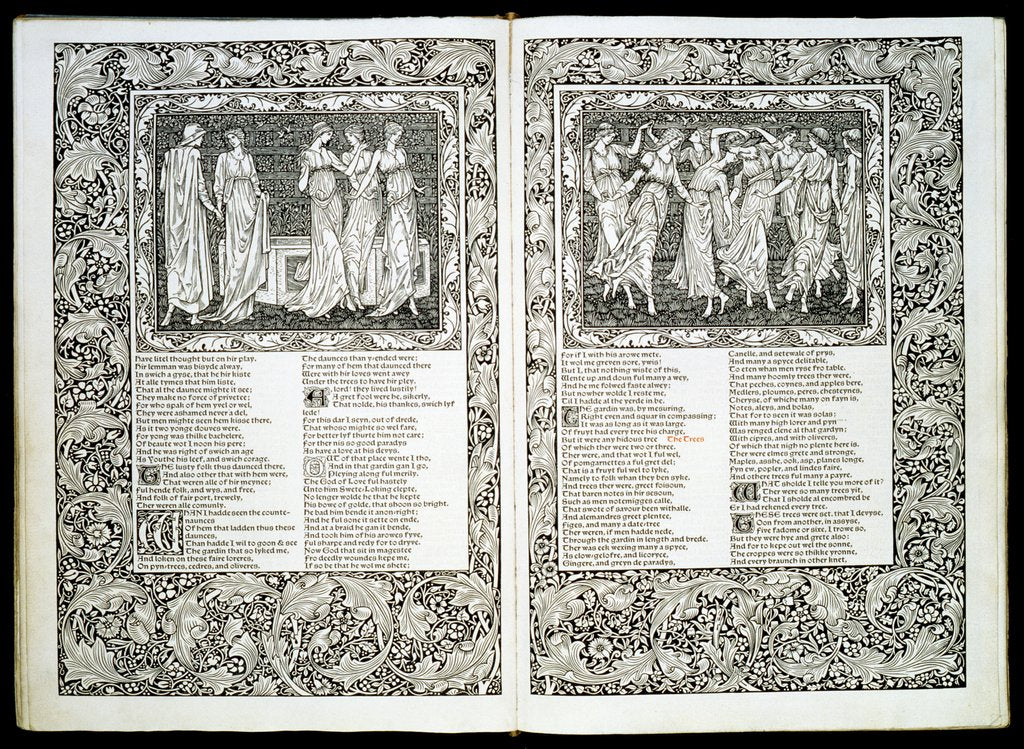 have litel thought but on hir play.
Hir lemman was bisyde alway,
In swich a gyse, that he hir kiste
At alle tymes that him liste,
That al the daunce mighte it see;
They make no force of privetee;
for who spak of hem yvel or wel,
They were ashamed never a del,
But men mighte seen hem kisse there,
As it two yonge douves were.
for yong was thilke bachelere,
Of beaute wot I noon his pere;
And he was right of swich an age
As Youthe his leef, and swich corage.
The lusty folk thus daunced there,
And also other that with hem were,
That weren alle of hir meynee;
ful hende folk, and wys, and free,
And folk of fair port, trewely,
Ther weren alle comunly.
Whan I hadde seen the counte-
naunces
Of hem that ladden thus these
daunces,
Than hadde I wil to goon & see
The gardin that so lyked me,
And loken on these faire loreres,
On pyn-trees, cedres, and oliveres.
The daunces than y-ended were;
for many of hem that daunced there
Were with hir loves went awey
Under the trees to have hir pley.
A, lord! they lived lustily!
A gret fool were he, sikerly,
That nolde, his thankes, swich lyf
lede!
for this dar I seyn, out of drede,
That whoso mighte so wel fare,
for better lyf thurte him not care;
for ther nis so good paradys
As have a love at his devys.
Out of that place wente I tho,
And in that gardin gan I go,
Pleying along ful merily.
The God of Love ful hastely
Unto him Swete-Loking clepte,
No lenger wolde he that he kepte
His bowe of golde, that shoon so bright.
He bad him bende it anon-right;
And he ful sone it sette on ende,
And at a braid he gan it bende,
And took him of his arowes fyve,
ful sharpe and redy for to dryve.
Now God that sit in magestee
fro deedly woundes kepe me,
If so be that he wol me shete;
for if I with his arowe mete,
It wol me greven sore, ywis!
But I, that nothing wiste of this,
Wente up and doun ful many a wey,
And he me folwed faste alwey;
But nowher wolde I reste me,
Til I hadde al the yerde in be.
The gardin was, by mesuring,
Right even and squar in compassing;
It was as long as it was large.
Of fruyt had every tree his charge,
But it were any hidous tree The Trees
Of which ther were two or three.
Ther were, and that wot I ful wel,
Of pomgarnettes a ful gret del;
That is a fruyt ful wel to lyke,
Namely to folk whan they ben syke.
And trees ther were, greet foisoun,
That baren notes in hir sesoun,
Such as men notemigges calle,
That swote of savour been withalle.
And alemandres greet plentee,
figes, and many a datetree
Ther weren, if men hadde nede,
Through the gardin in length and brede.
Ther was eek wexing many a spyce,
As clow-gelofre, and licoryce,
Gingere, and greyn de paradys,
Canelle, and setewale of prys,
And many a spyce delitable,
To eten whan men ryse fro table.
And many hoomly trees ther were,
That peches, coynes, and apples bere,
Medlers, ploumes, peres, chesteynes,
Cheryse, of whiche many on fayn is,
Notes, aleys, and bolas,
That for to seen it was solas;
With many high lorer and pyn
Was renged clene al that gardyn;
With cipres, and with oliveres,
Of which that nigh no plente here is.
Ther were elmes grete and stronge,
Maples, asshe, ook, asp, planes longe,
fyn ew, popler, and lindes faire,
And othere trees ful many a payre.
What sholde I telle you more of it?
Ther were so many trees yit,
That I sholde al encombred be
Er I had rekened every tree.
These trees were set, that I devyse,
Oon from another, in assyse,
five fadome or sixe, I trowe so,
But they were hye and grete also:
And for to kepe out wel the sonne,
The croppes were so thikke yronne,
And every braunch in other knet,